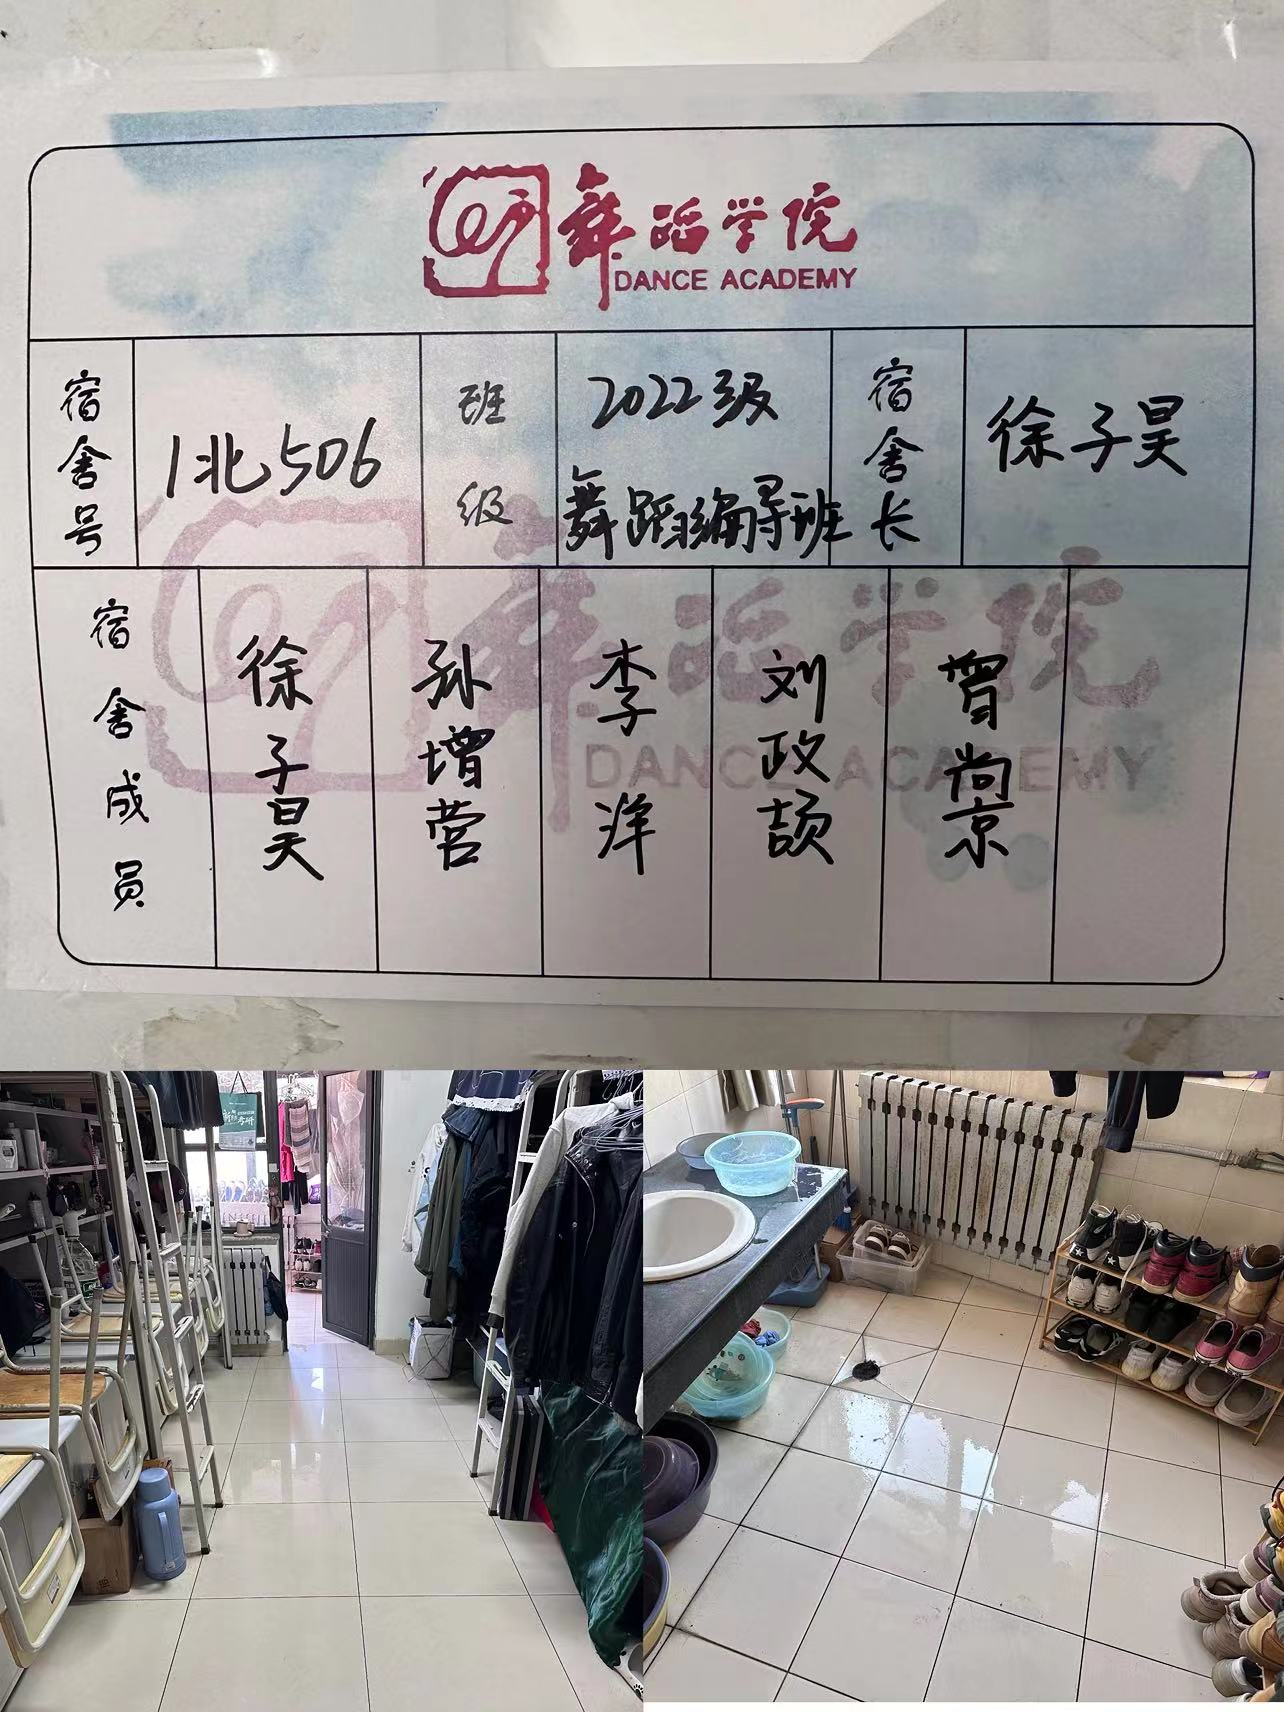 舞蹈学院
DANCE ACADEMY
宿舍号
1北506
班级
2022级
舞蹈编导班
宿舍长
徐子昊
宿舍成员
徐子昊
孙增营
李洋
刘政颉
曾尚京
舞蹈学院
DANCE ACADEMY
考研